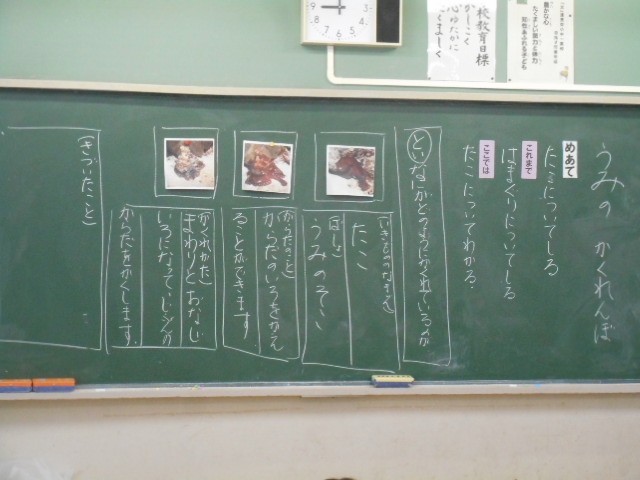 うみの かくれんぼ
めあて
たこについてしる
これまで
はまぐりについてしる
ここでは
たこについてわかる。
(とい)なにがどのようにかくれているのか
(いきもののなまえ)
たこ
(ばしょ)
うみのそこ
(からだのこと)
からだのいろをかえ
ることができます。
(かくれかた)
まわりとおなじ
いろになって、じぶんの
からだをかくします。
(きづいたこと)
校教育目標
かしこく
心ゆたかに
たくましく
豊かな心
たくましい気力と体力
知性あふれる子ども
9
8
7
6
5
4
3